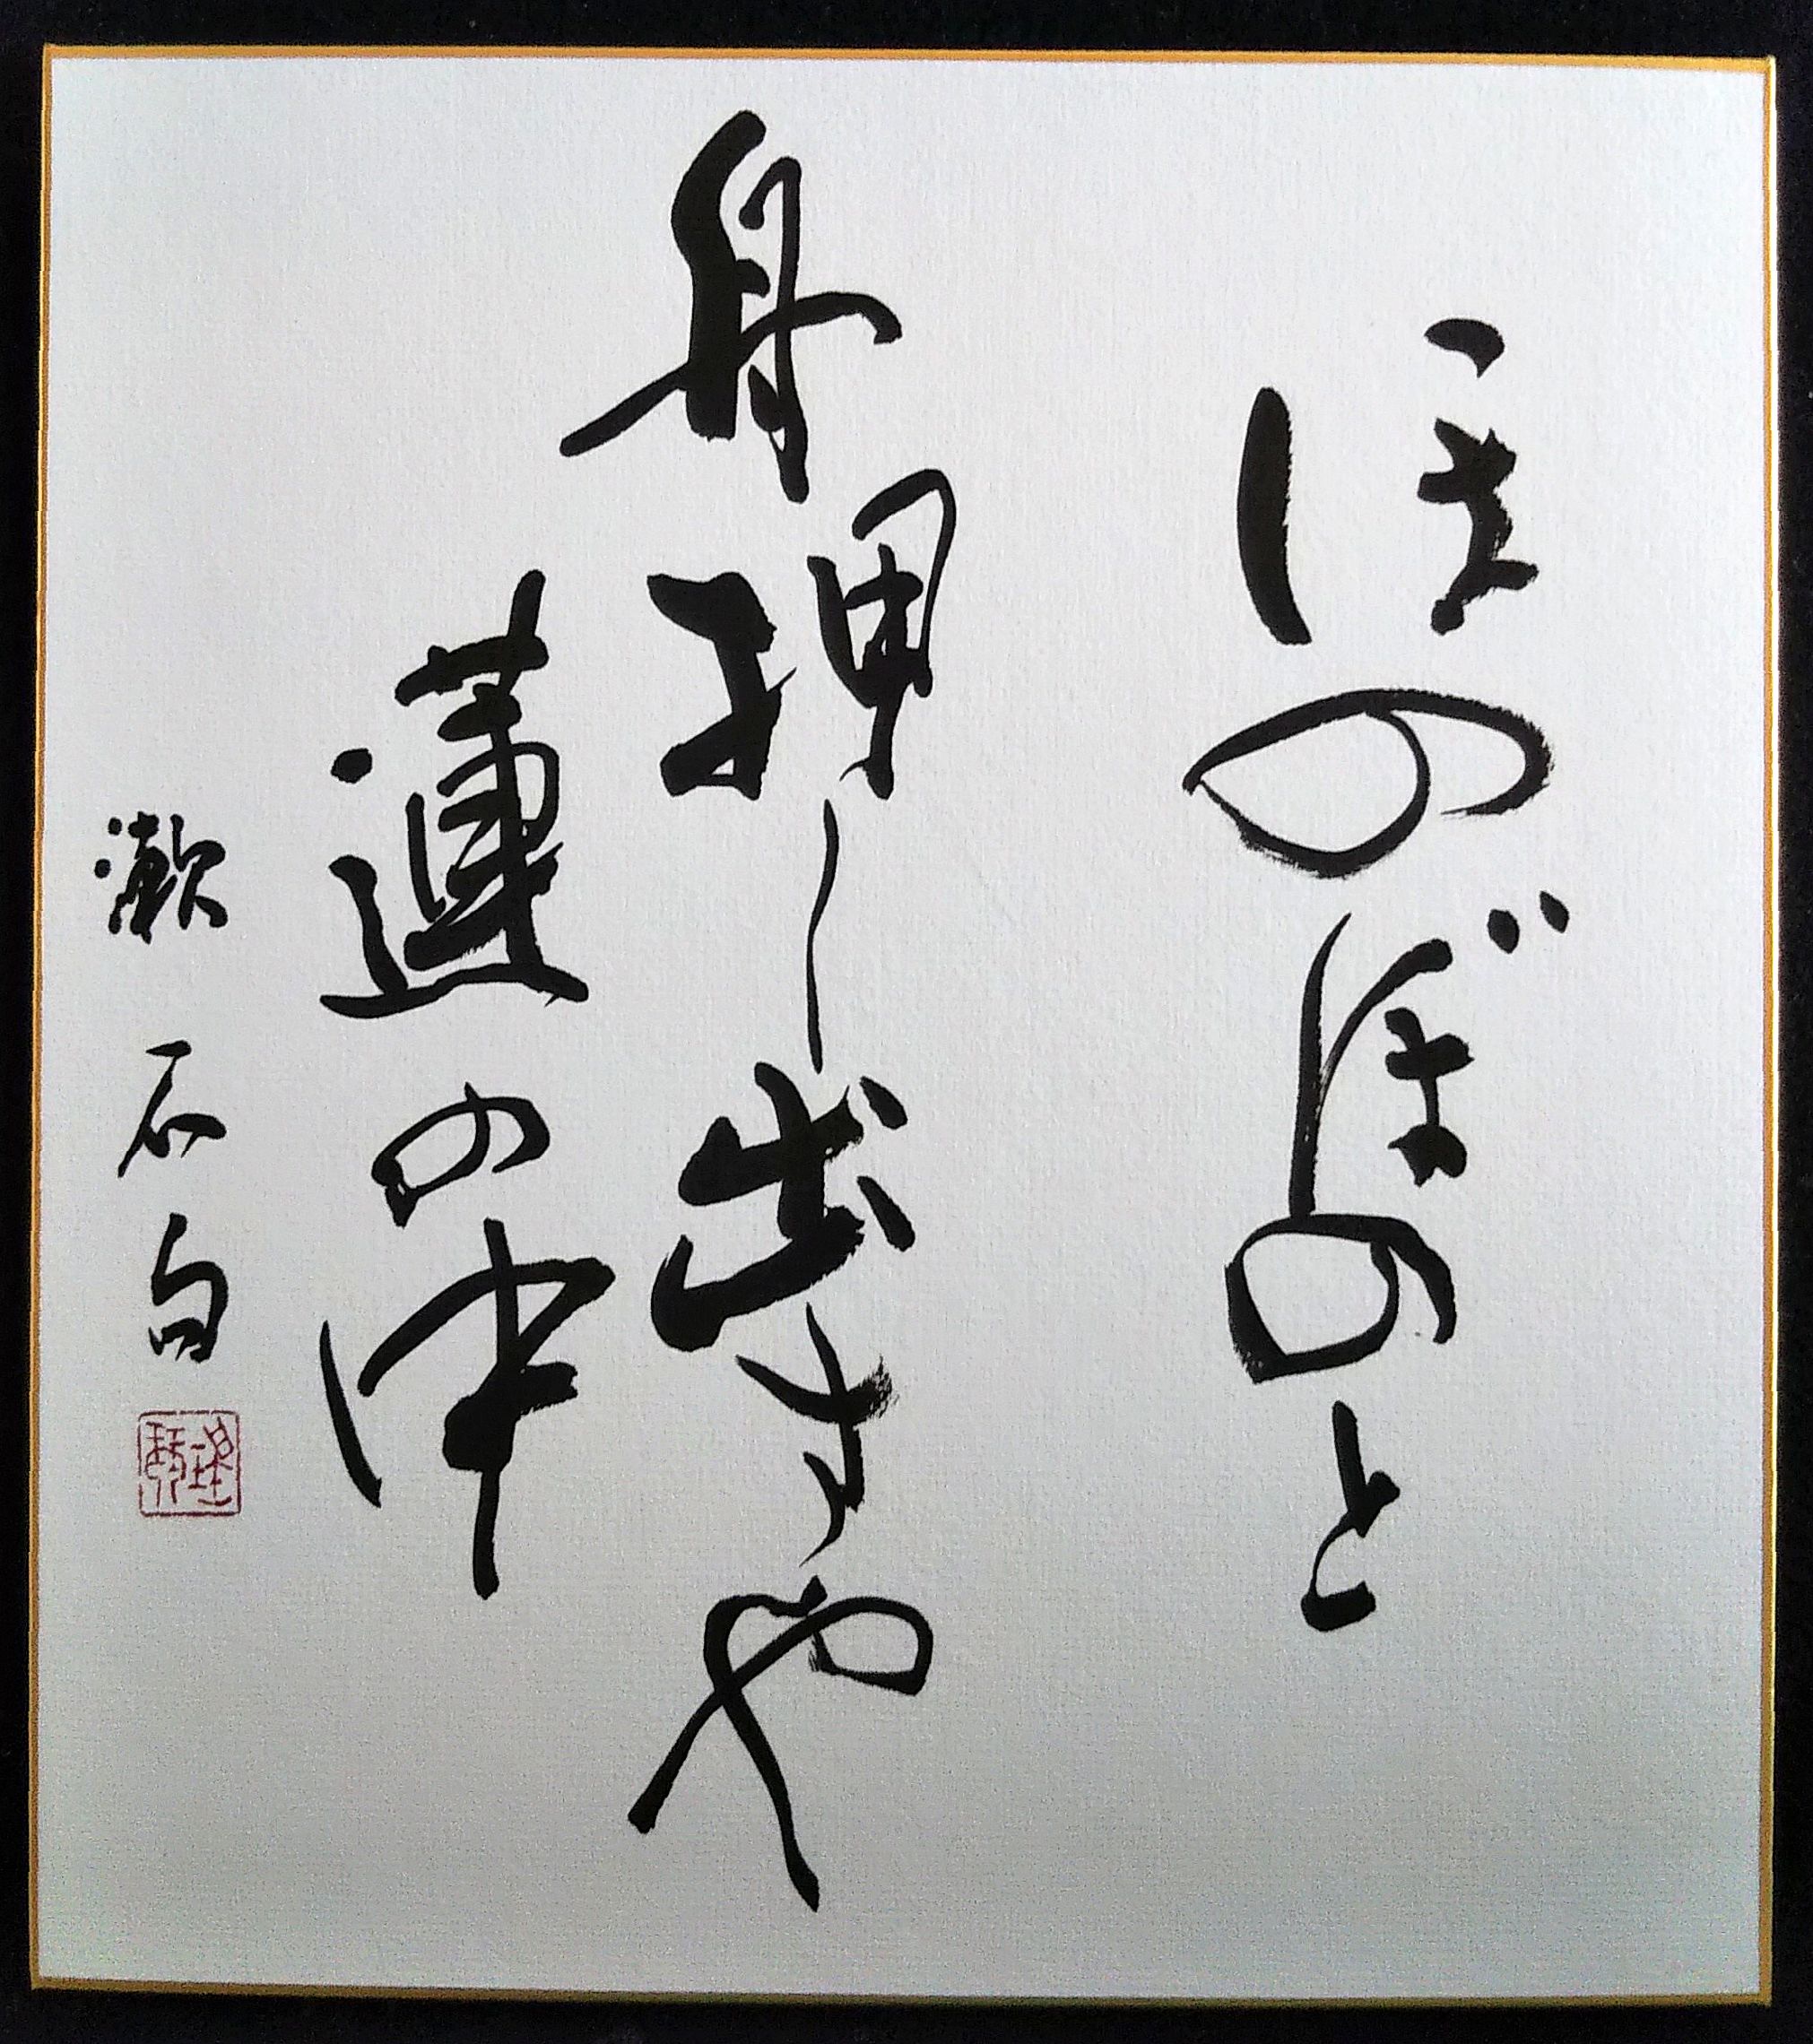 ほのぼのと
舟押し出すや
蓮の中
漱石句